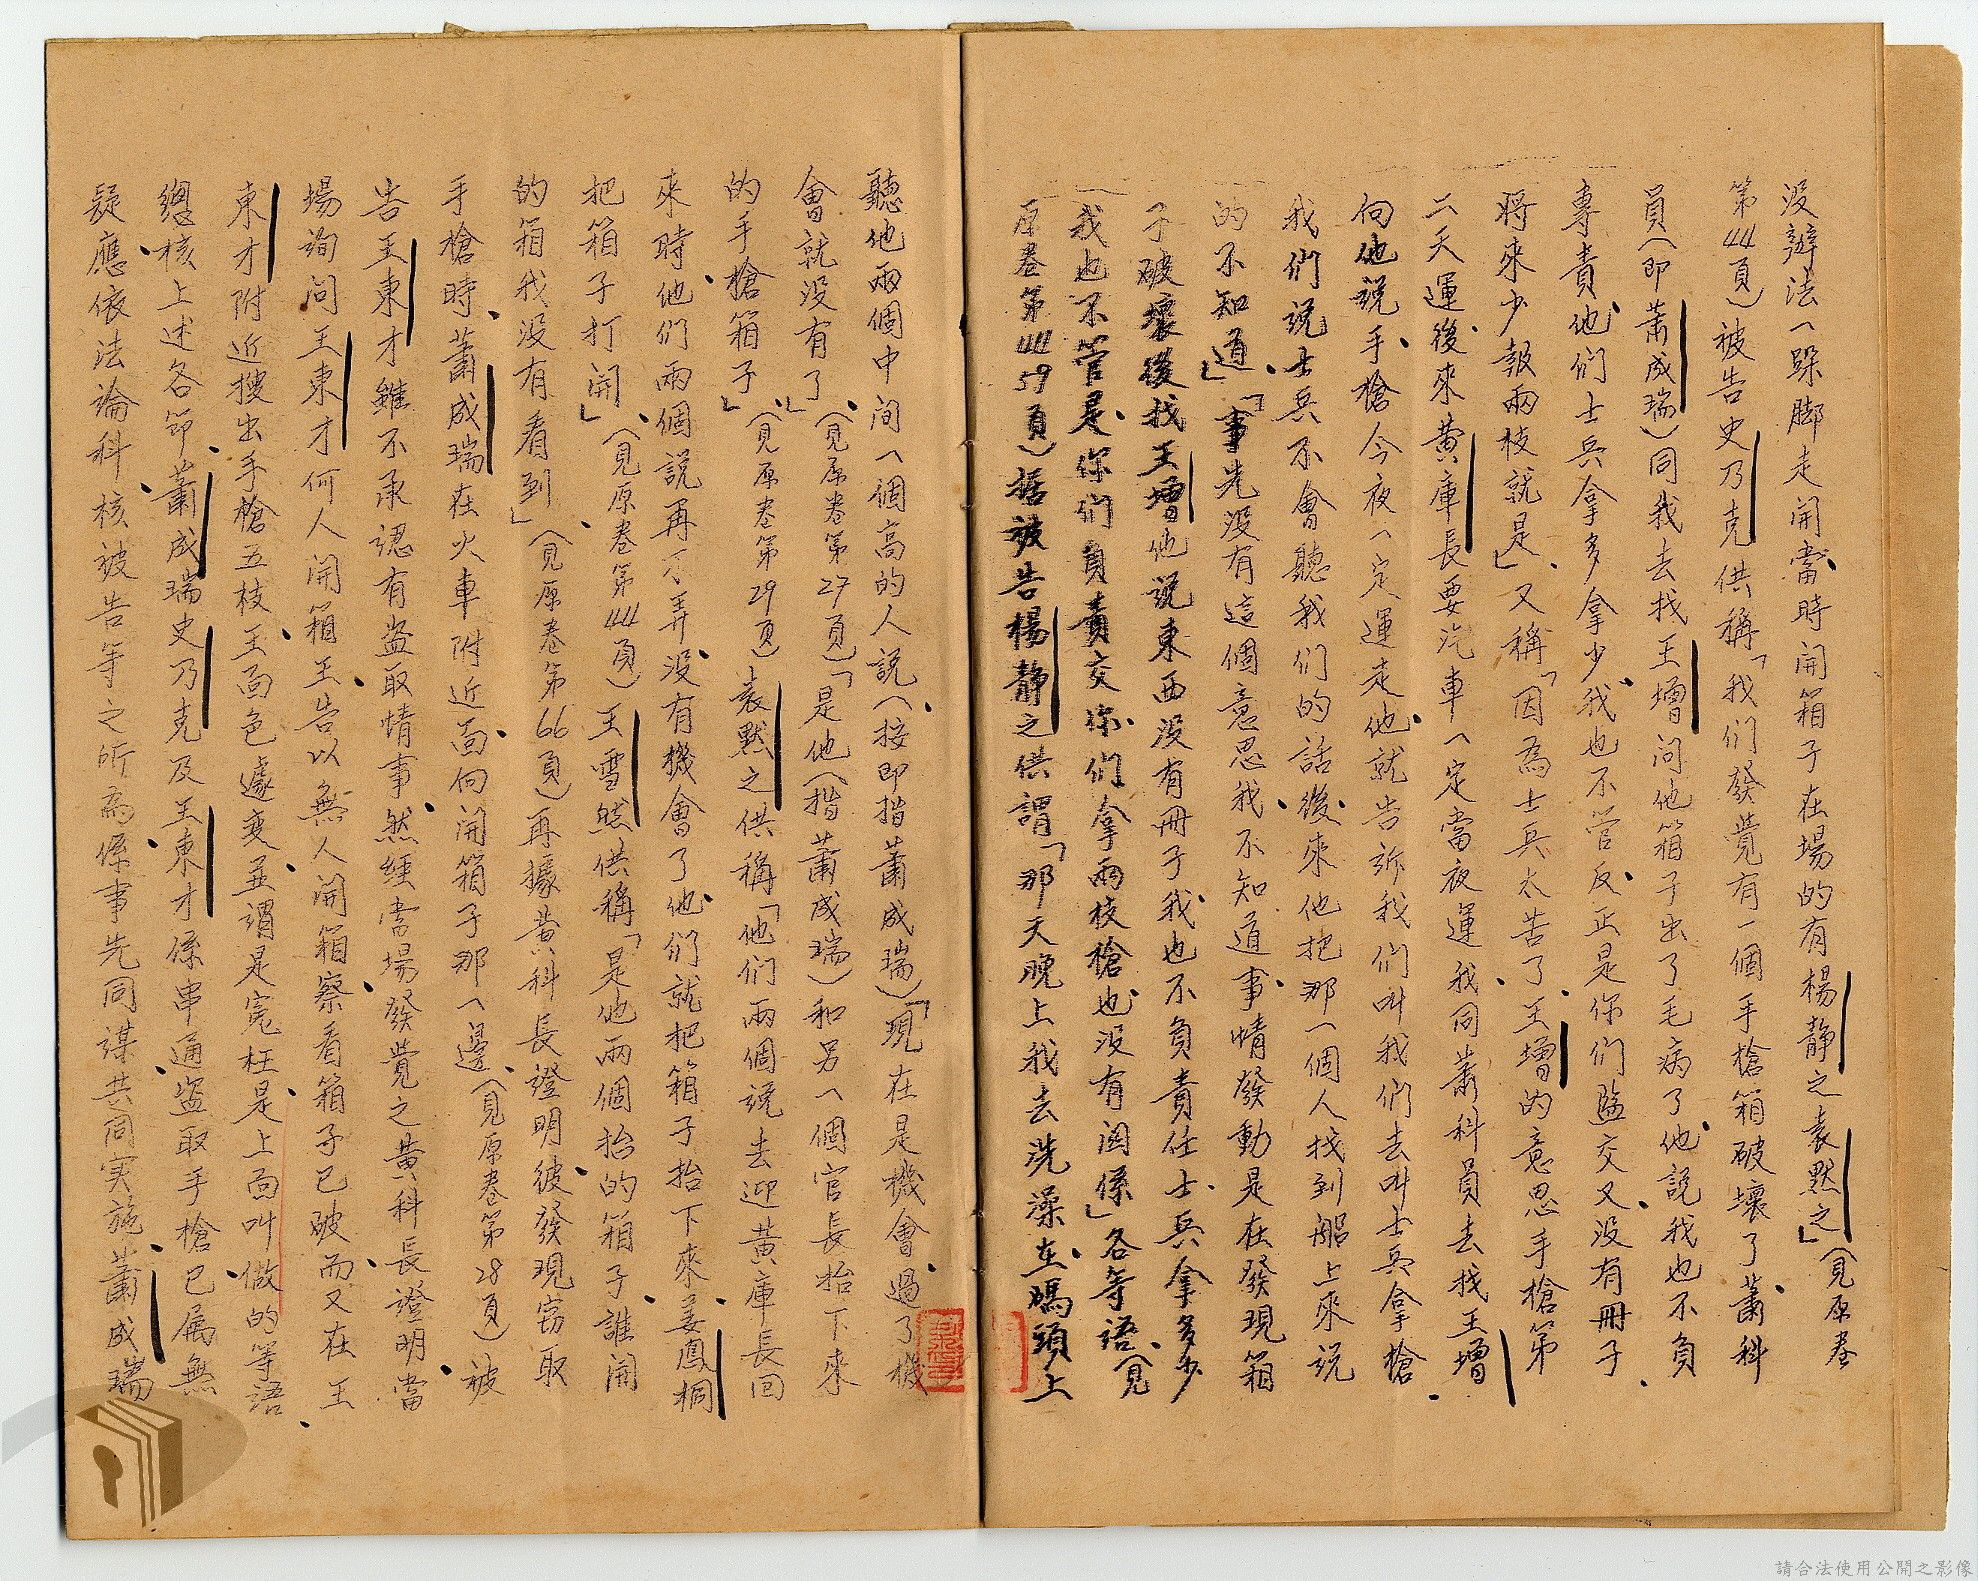 沒辦法一跺脚走開當時開箱子在場的有楊靜之袁默之」(見原卷
第44頁)被告史乃克供稱「我们發覺有一個手槍箱破壞了蕭科
員(即蕭成瑞)同我去找王增问他箱子出了毛病了他説我也不負
專責他们士兵拿多拿少我也不管反正是你们監交又没有冊子
將來少報兩枝就是」又稱「因為士兵太苦了王增的意思手槍第
二天運後來黄庫長要汽車一定當夜運我同蕭科員去找王增
向他説手槍今夜一定運走他就告訴我们叫我们去叫士兵拿槍
我们説士兵不會聽我们的話後來他把那一個人找到船上來説
的不知道」「事先没有這個意思我不知道事情發動是在發現箱
子破壞後找王增他説東西没有冊子我也不負責任士兵拿多少
我也不管是你们負責交你们拿兩枝槍也没有関係」各等語(見
原卷第4459頁)據被告楊靜之供謂「那天晚上我去洗澡在碼頭上
聽他兩個中间一個高的人説(按即指蕭成瑞)「現在是機會過了機
會就没有了」(見原卷第27頁)「是他(指蕭成瑞)和另一個官長抬下來
的手槍箱子」(見原卷第29頁)袁默之供稱「他们兩個説去迎黄庫長回
來時他们兩個説再不弄没有機會了他们就把箱子抬下來姜鳳桐
把箱子打開」(見原卷第44頁)王雪然供稱「是他兩個抬的箱子誰開
的箱我没有看到」(見原卷第66頁)再據黄科長證明彼發現窃取
手槍時蕭成瑞在火車附近面向開箱子那一邊(見原卷第28頁)被
告王東才雖不承認有盗取情事然經當場發覺之黄科長證明當
場詢问王東才何人開箱王告以無人開箱察看箱子已破而又在王
東才附近搜出手槍五枝王面色遽变並謂是寃枉是上面叫做的等語
總核上述各節蕭成瑞史乃克及王東才係串通盗取手槍已属無
疑應依法論科核被告等之所為係事先同謀共同实施蕭成瑞
請合法使用公開之影像